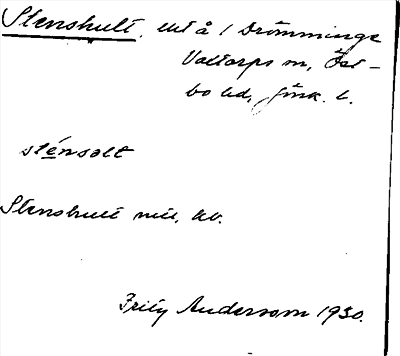 Stenshult, utä å 1 Drömminge
Valtorps sn, Öst-
bo hd, Jönk. l.
sténsolt
Stenshult mtl, kv.
Fritz Anderson 1930.